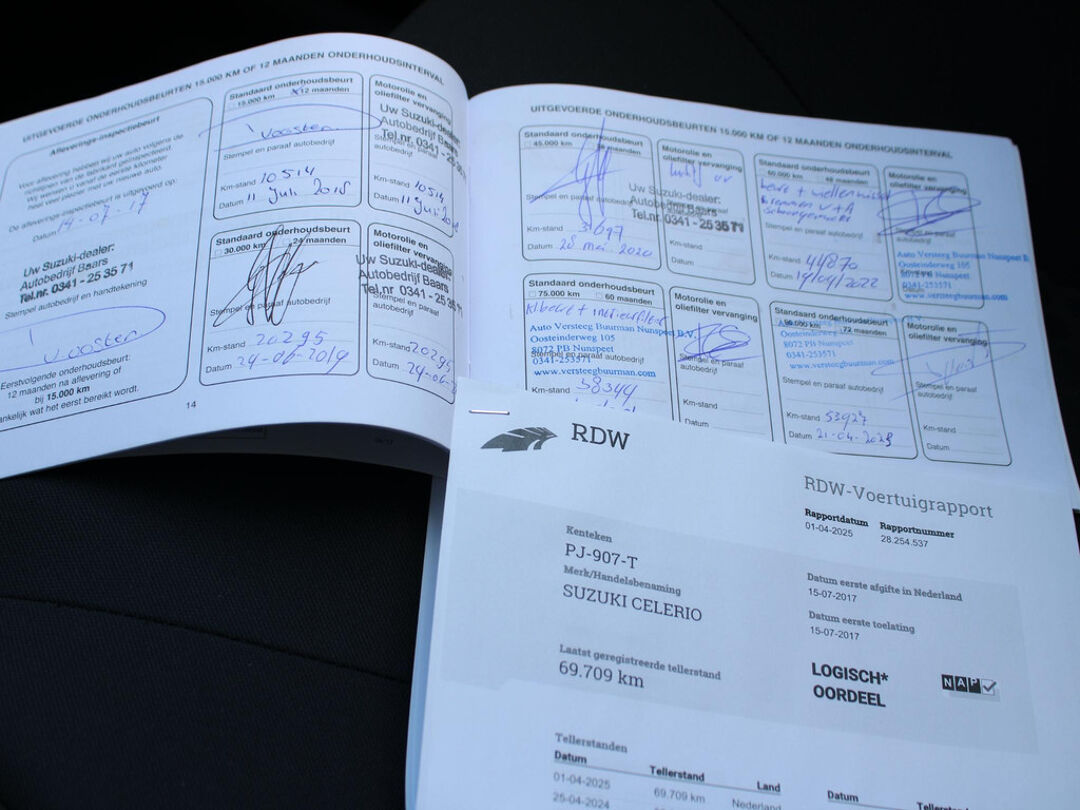 UITGEVOERDE ONDERHOUDSBEURTEN 15.000 KM OF 12 MAANDEN ONDERHOUDSINTERVAL
Afleverings-inspectiebeurt
Voor aflevering hebben wij uw auto volgens de
richtlijnen van de fabrikant geïnspecteerd.
Wij wensen u vanaf de eerste kilometer
heel veel plezier met uw nieuwe auto.
De afleverings-inspectiebeurt is uitgevoerd op:
Datum 14-07-17
Uw Suzuki-dealer:
Autobedrijf Baars
Tel.nr. 0341 - 25 35 71
Stempel autobedrijf en handtekening
Eerstvolgende onderhoudsbeurt:
12 maanden na aflevering of
bij 15.000 km
wat het eerst bereikt wordt.
14
Standaard onderhoudsbeurt
15.000 km 12 maanden
Stempel en paraaf autobedrijf
Km-stand 10514
Datum 11 Juli 2018
Motorolie en
oliefilter vervanging
Uw Suzuki-dealer:
Autobedrijf Baars
Tel.nr. 0341 - 25 35 71
autobedrijf
Km-stand 10514
Datum 11 Juli
Standaard onderhoudsbeurt
30.000 km 24 maanden
Stempel en paraaf autobedrijf
Km-stand 20295
Datum 24-06-2019
Motorolie en
oliefilter vervanging
Uw Suzuki-dealer:
Autobedrijf Baars
Tel.nr. 0341 - 25 35 71
autobedrijf
Km-stand 20295
Datum 24-06-
UITGEVOERDE ONDERHOUDSBEURTEN 15.000 KM OF 12 MAANDEN ONDERHOUDSINTERVAL
Standaard onderhoudsbeurt
45.000 km 36 maanden
Stempel en paraaf
Km-stand
Datum 28 mei 2020
Motorolie en
oliefilter vervanging
Uw Suzuki-dealer:
Autobedrijf Baars
Tel.nr. 0341 - 25 35 71
Km-stand
Datum
Standaard onderhoudsbeurt
60.000 km 48 maanden
beurt +
Stempel en paraaf autobedrijf
Km-stand 44870
Datum 19/04/2022
Motorolie en
oliefilter vervanging
Auto Versteeg Buurman Nunspeet B.V.
Oosteinderweg 105
8072 PB Nunspeet
0341-253571
www.versteegbuurman.com
Standaard onderhoudsbeurt
75.000 km 60 maanden
Auto Versteeg Buurman Nunspeet B.V.
Oosteinderweg 105
8072 PB Nunspeet
Stempel en paraaf autobedrijf
0341-253571
www.versteegbuurman.com
Km-stand 58344
Motorolie en
oliefilter vervanging
Stempel en paraaf
autobedrijf
Km-stand
Datum
Standaard onderhoudsbeurt
90.000 km 72 maanden
Oosteinderweg 105
8072 PB Nunspeet
0341-253571
www.versteegbuurman.com
Stempel en paraaf autobedrijf
Km-stand 53927
Datum 21-04-2023
Motorolie en
oliefilter vervanging
Stempel en paraaf
autobedrijf
Km-stand
Datum
RDW
RDW-Voertuigrapport
Rapportdatum Rapportnummer
01-04-2025 28.254.537
Kenteken
PJ-907-T
Merk/Handelsbenaming
SUZUKI CELERIO
Datum eerste afgifte in Nederland
15-07-2017
Datum eerste toelating
15-07-2017
Laatst geregistreerde tellerstand
69.709 km
LOGISCH*
OORDEEL
NAP
Tellerstanden
Datum Tellerstand Land Datum
01-04-2025 69.709 km Nederland
25-04-2024